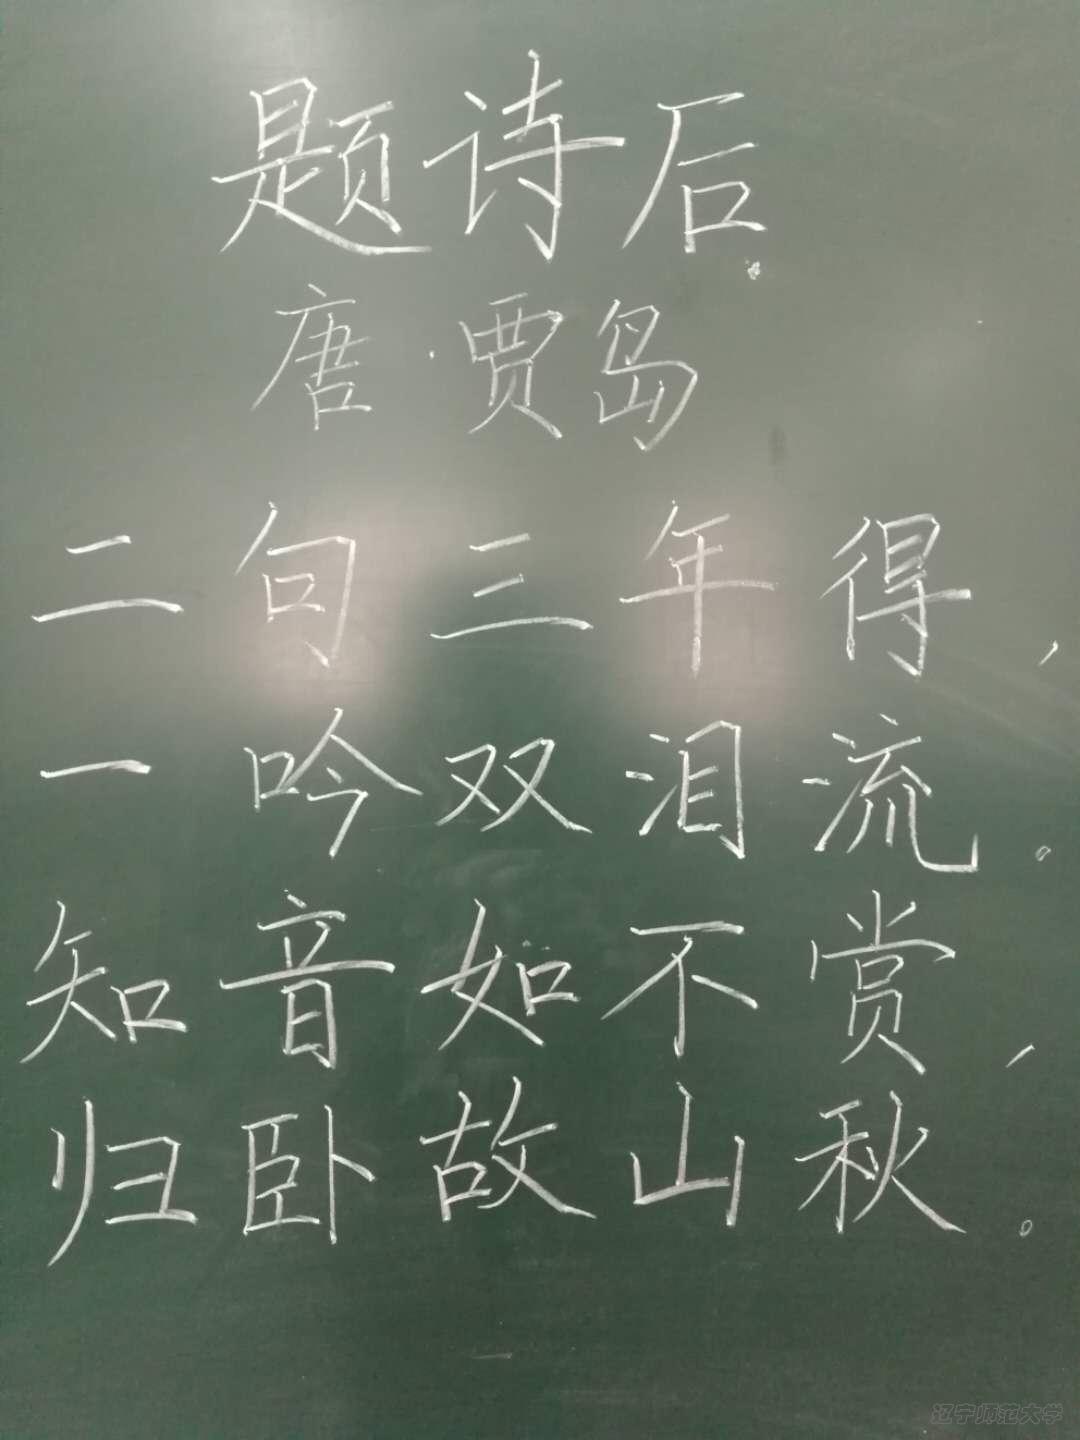 题诗后
唐·贾岛
二句三年得，
一吟双泪流。
知音如不赏，
归卧故山秋。
辽宁师范大学